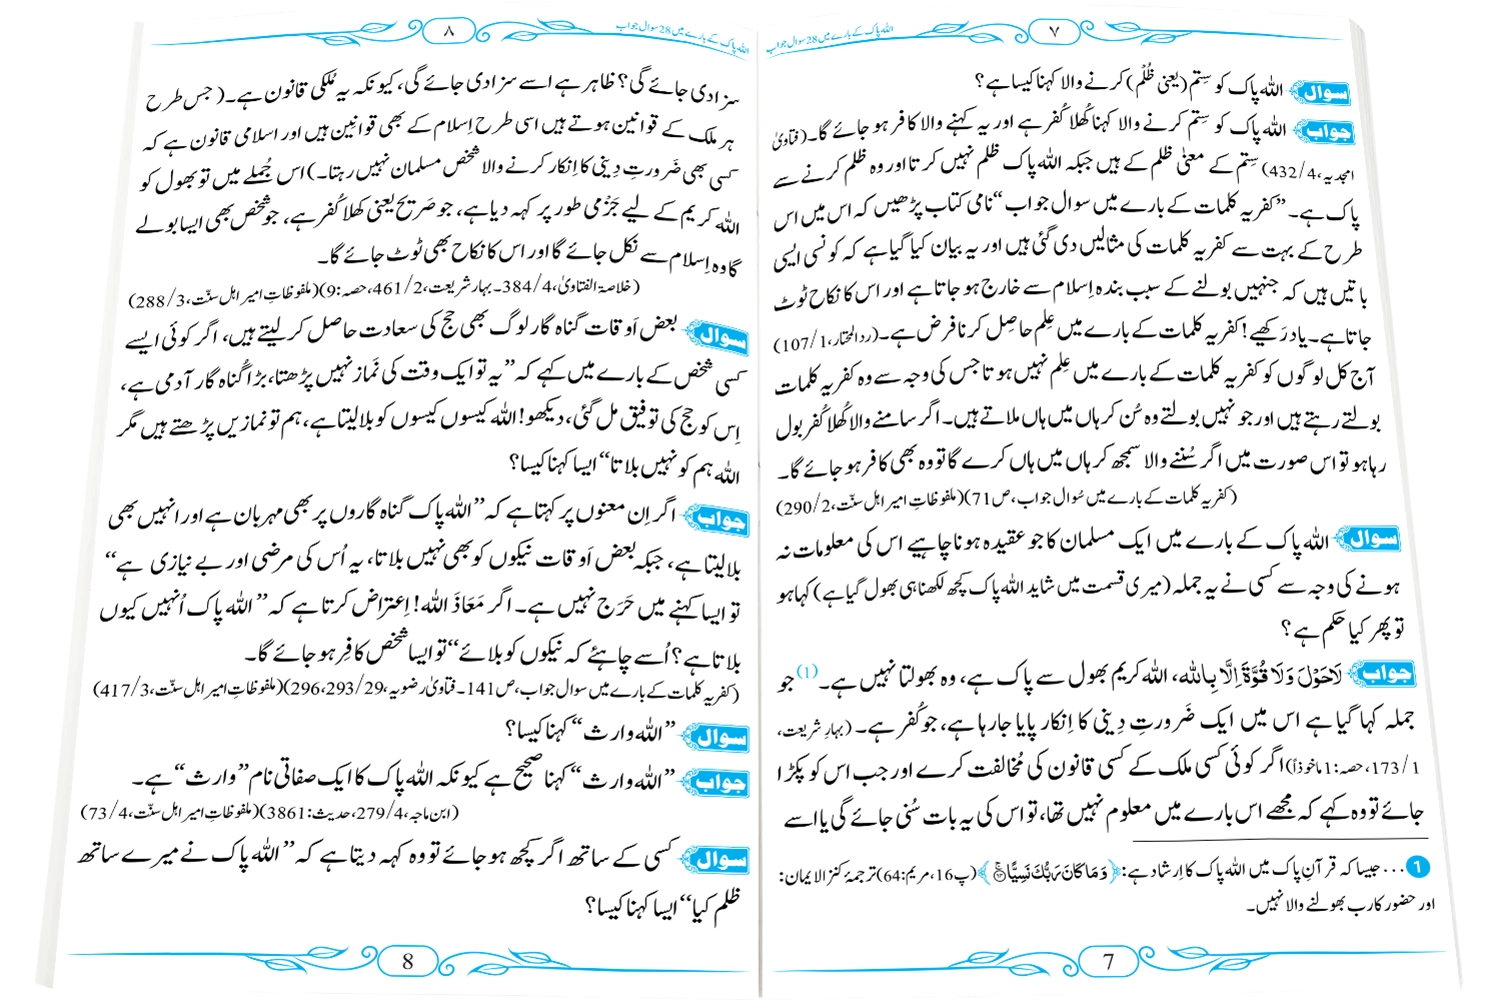 اللہ پاک کے بارے میں 28 سوال جواب
۷
سوال اللہ پاک کو سِتم (یعنی ظُلْم) کرنے والا کہنا کیسا ہے؟
جواب اللہ پاک کو سِتم کرنے والا کہنا کُھلا کُفر ہے اور یہ کہنے والا کافر ہو جائے گا۔ (فتاویٰ
امجدیہ، 4/432) سِتم کے معنیٰ ظلم کے ہیں جبکہ اللہ پاک ظلم نہیں کرتا اور وہ ظلم کرنے سے
پاک ہے۔ ”کفریہ کلمات کے بارے میں سوال جواب“ نامی کتاب پڑھیں کہ اس میں اس
طرح کے بہت سے کفریہ کلمات کی مثالیں دی گئی ہیں اور یہ بیان کیا گیا ہے کہ کونسی ایسی
باتیں ہیں کہ جنہیں بولنے کے سبب بندہ اِسلام سے خارج ہو جاتا ہے اور اس کا نکاح ٹوٹ
جاتا ہے۔ یاد رکھیے! کفریہ کلمات کے بارے میں عِلم حاصِل کرنا فرض ہے۔ (ردالمحتار، 1/107)
آج کل لوگوں کو کفریہ کلمات کے بارے میں عِلم نہیں ہوتا جس کی وجہ سے وہ کفریہ کلمات
بولتے رہتے ہیں اور جو نہیں بولتے وہ سُن کر ہاں میں ہاں ملاتے ہیں۔ اگر سامنے والا کُھلا کُفر بول
رہا ہو تو اس صورت میں اگر سُننے والا سمجھ کر ہاں میں ہاں کرے گا تو وہ بھی کافر ہو جائے گا۔
(کفریہ کلمات کے بارے میں سُوال جواب، ص71) (ملفوظاتِ امیرِ اہلِ سنّت، 2/290)
سوال اللہ پاک کے بارے میں ایک مسلمان کا جو عقیدہ ہونا چاہیے اس کی معلومات نہ
ہونے کی وجہ سے کسی نے یہ جملہ (میری قسمت میں شاید اللہ پاک کچھ لکھنا ہی بھول گیا ہے) کہا ہو
تو پھر کیا حکم ہے؟
جواب لَاحَوْلَ وَلَا قُوَّۃَ اِلَّا بِاللہ، اللہ کریم بھول سے پاک ہے، وہ بھولتا نہیں ہے۔ (1) جو
جملہ کہا گیا ہے اس میں ایک ضَرورتِ دِینی کا اِنکار پایا جا رہا ہے، جو کُفر ہے۔ (بہارِ شریعت،
1/173، حصہ:1 ماخوذاً) اگر کوئی کسی ملک کے کسی قانون کی مُخالفت کرے اور جب اس کو پکڑا
جائے تو وہ کہے کہ مجھے اس بارے میں معلوم نہیں تھا، تو اس کی یہ بات سُنی جائے گی یا اسے
1 ... جیسا کہ قرآنِ پاک میں اللہ پاک کا اِرشاد ہے: ﴿وَمَا كَانَ رَبُّكَ نَسِيًّا﴾ (پ16، مریم:64) ترجمۂ کنز الایمان:
اور حضور کا رب بھولنے والا نہیں۔
7
اللہ پاک کے بارے میں 28 سوال جواب
۸
سزا دی جائے گی؟ ظاہر ہے اسے سزا دی جائے گی، کیونکہ یہ مُلکی قانون ہے۔ (جس طرح
ہر ملک کے قوانین ہوتے ہیں اسی طرح اِسلام کے بھی قوانِین ہیں اور اسلامی قانون ہے کہ
کسی بھی ضَرورتِ دِینی کا اِنکار کرنے والا شخص مسلمان نہیں رہتا۔) اس جُملے میں تو بھول کو
اللہ کریم کے لیے جَزْمی طور پر کہہ دیا ہے، جو صَریح یعنی کھلا کُفر ہے، جو شخص بھی ایسا بولے
گا وہ اِسلام سے نکل جائے گا اور اس کا نکاح بھی ٹوٹ جائے گا۔
(خلاصۃ الفتاویٰ، 4/384۔ بہارِ شریعت، 2/461، حصہ:9) (ملفوظاتِ امیرِ اہلِ سنّت، 3/288)
سوال بعض اَوقات گناہ گار لوگ بھی حج کی سعادت حاصل کر لیتے ہیں، اگر کوئی ایسے
کسی شخص کے بارے میں کہے کہ ”یہ تو ایک وقت کی نَماز نہیں پڑھتا، بڑا گُناہ گار آدمی ہے،
اِس کو حج کی توفیق مل گئی، دیکھو! اللہ کیسوں کیسوں کو بلا لیتا ہے، ہم تو نمازیں پڑھتے ہیں مگر
اللہ ہم کو نہیں بلاتا“ ایسا کہنا کیسا؟
جواب اگر اِن معنوں پر کہتا ہے کہ ”اللہ پاک گناہ گاروں پر بھی مہربان ہے اور انہیں بھی
بلا لیتا ہے، جبکہ بعض اَوقات نیکوں کو بھی نہیں بلاتا، یہ اُس کی مرضی اور بے نیازی ہے“
تو ایسا کہنے میں حَرَج نہیں ہے۔ اگر مَعَاذَ اللہ! اِعتراض کرتا ہے کہ ”اللہ پاک اُنہیں کیوں
بلاتا ہے؟ اُسے چاہئے کہ نیکوں کو بلائے“ تو ایسا شخص کافِر ہو جائے گا۔
(کفریہ کلمات کے بارے میں سوال جواب، ص141۔ فتاویٰ رضویہ، 29/293، 296) (ملفوظاتِ امیرِ اہلِ سنّت، 3/417)
سوال ”اللہ وارث“ کہنا کیسا؟
جواب ”اللہ وارث“ کہنا صحیح ہے کیونکہ اللہ پاک کا ایک صفاتی نام ”وارث“ ہے۔
(ابن ماجہ، 4/279، حدیث: 3861) (ملفوظاتِ امیرِ اہلِ سنّت، 4/73)
سوال کسی کے ساتھ اگر کچھ ہو جائے تو وہ کہہ دیتا ہے کہ ”اللہ پاک نے میرے ساتھ
ظلم کیا“ ایسا کہنا کیسا؟
8